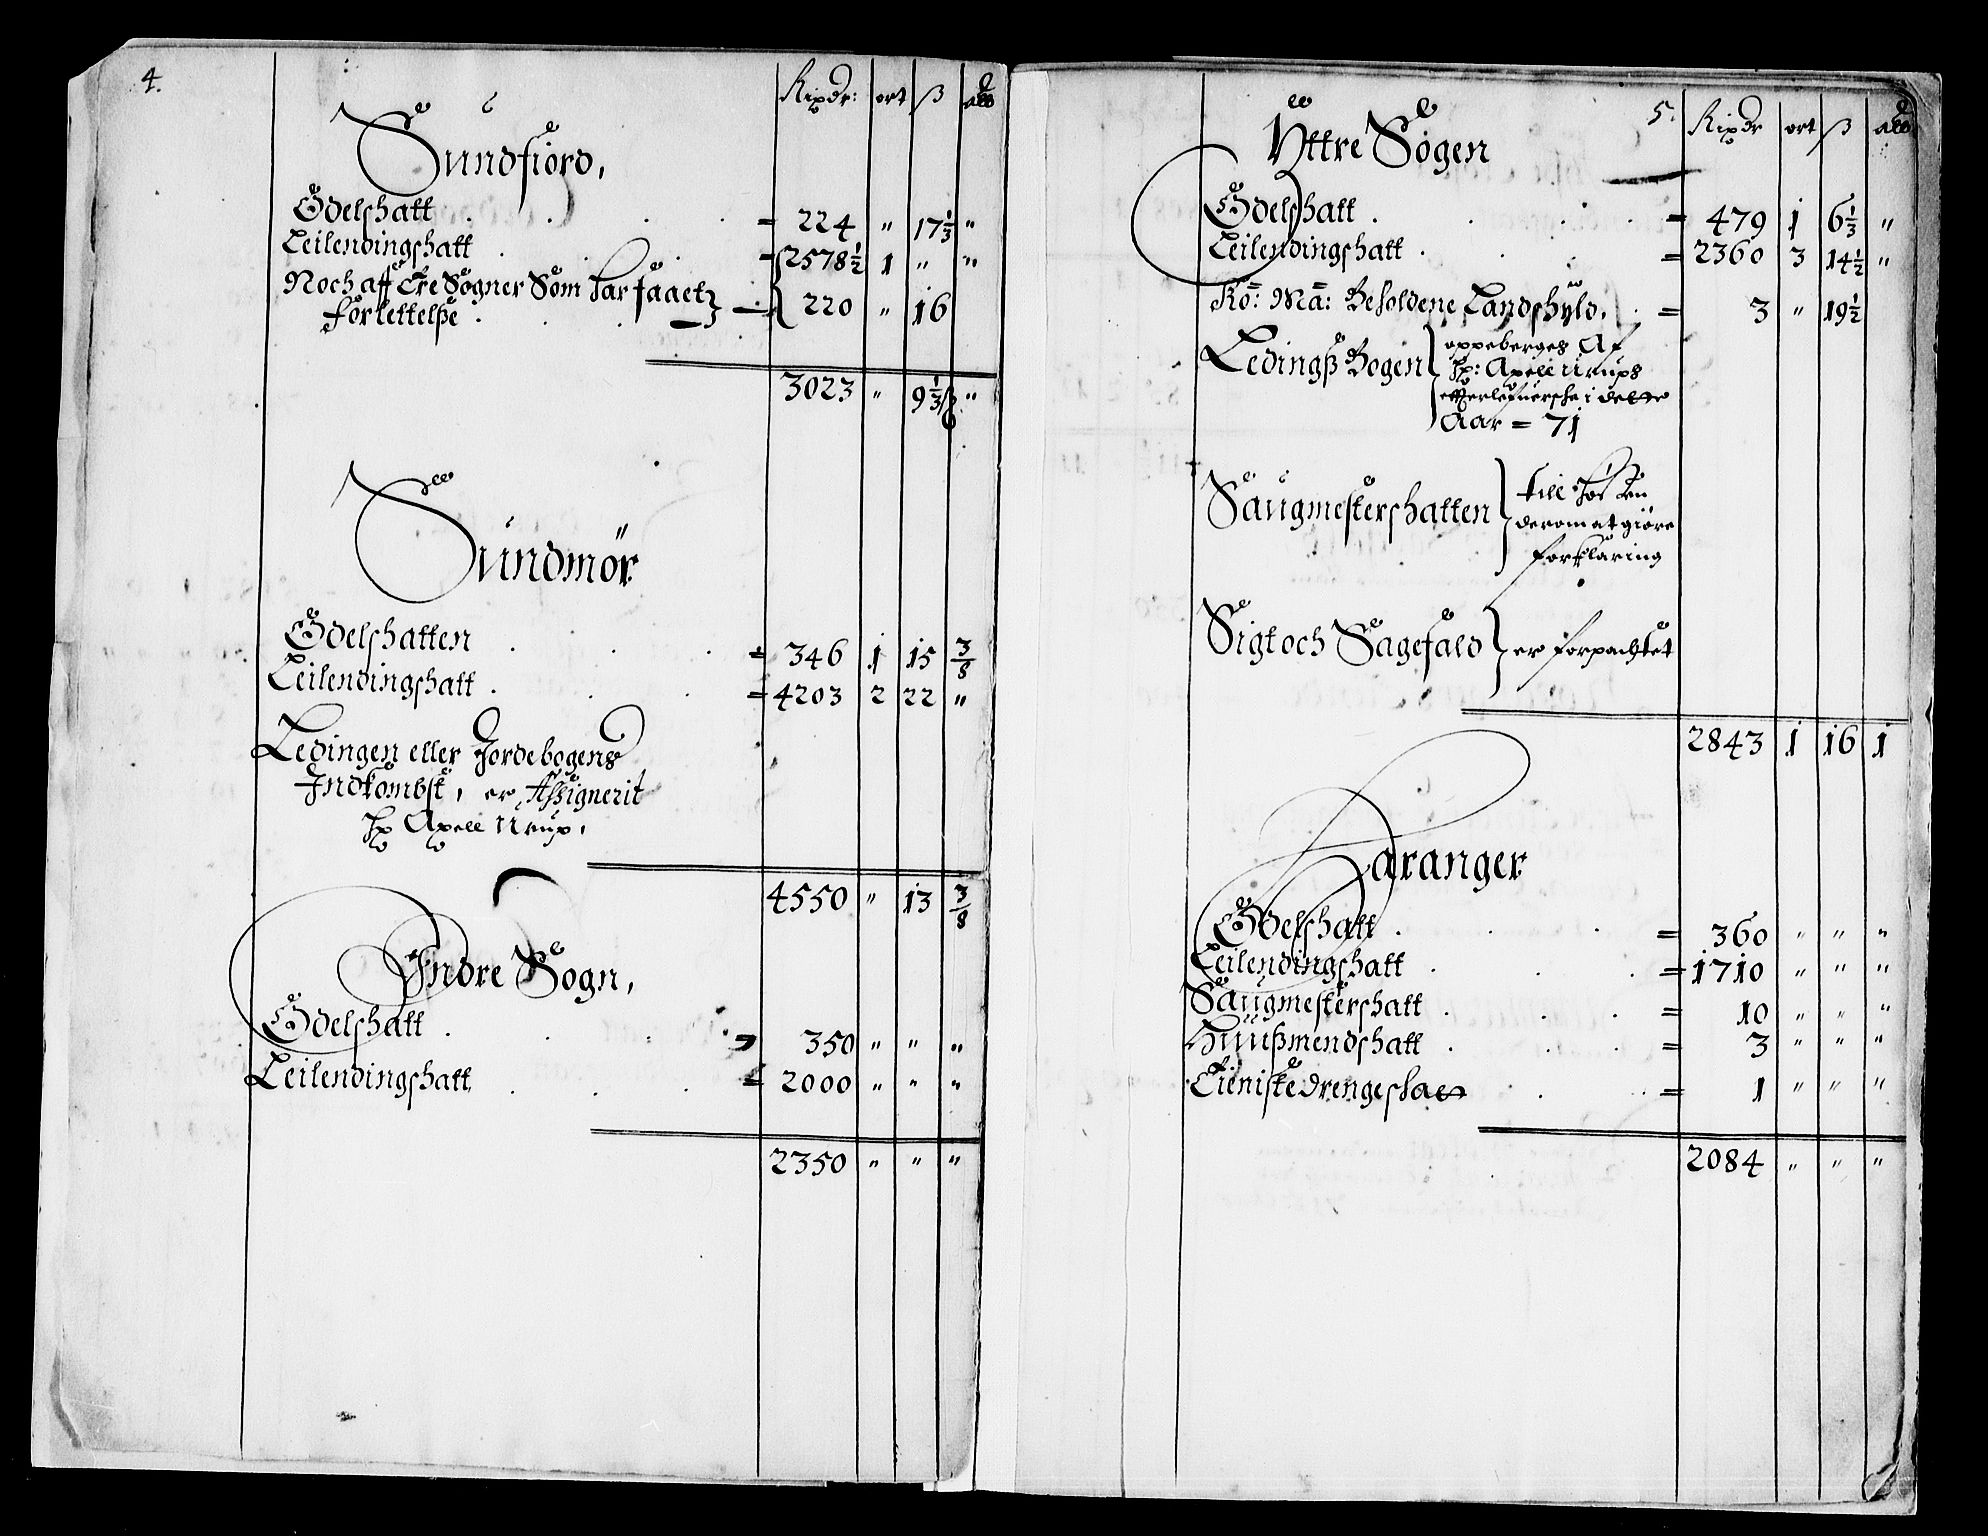 4.
Rixdr: ort ß alb
Sundfiord,
Odelschatt . . . = 224 " 17⅓ "
Leilendingschatt . . . = 2578½ 1 " "
Noch aff tre Sogner Som har faaet
forlettelße . . . 220 " 16
3023 " 9⅓ß "
Sundmør
Odelschatten . . . = 346 1 15 3/8
Leilendingschatt . . . = 4203 2 22 "
Ledingen eller Jordebogens
Indkombst, er Assignerit
Hr Axell Urup,
4550 " 13 3/8
Indre Sogn,
Odelschatt . . . = 350 " " "
Leilendingschatt . . . = 2000 " " "
2350 " " "
5. Rixdr ort ß alb
Yttre Sogen
Odelschatt . . . = 479 1 6⅓ "
Leilendingschatt . . . = 2360 3 14½ "
Ko: Ma: Beholdene Landschyld . = 3 " 19½
Ledingß Bogen oppeberges Af
Hr: Axell Urups
effterlefuersche i dette
Aar = 71
Saugmesterschatten till
derom at giøre
forklaring
Sigt och Sagefald er forpachtet
2843 1 16 1
Haranger
Odelschatt . . . = 360 " " "
Leilendingschatt . . . = 1710 " " "
Saugmesterschatt . . . = 10 " " "
Huußmendschatt . . . = 3 " " "
Tieniste drengeschat . . = 1 " " "
2084 " " "